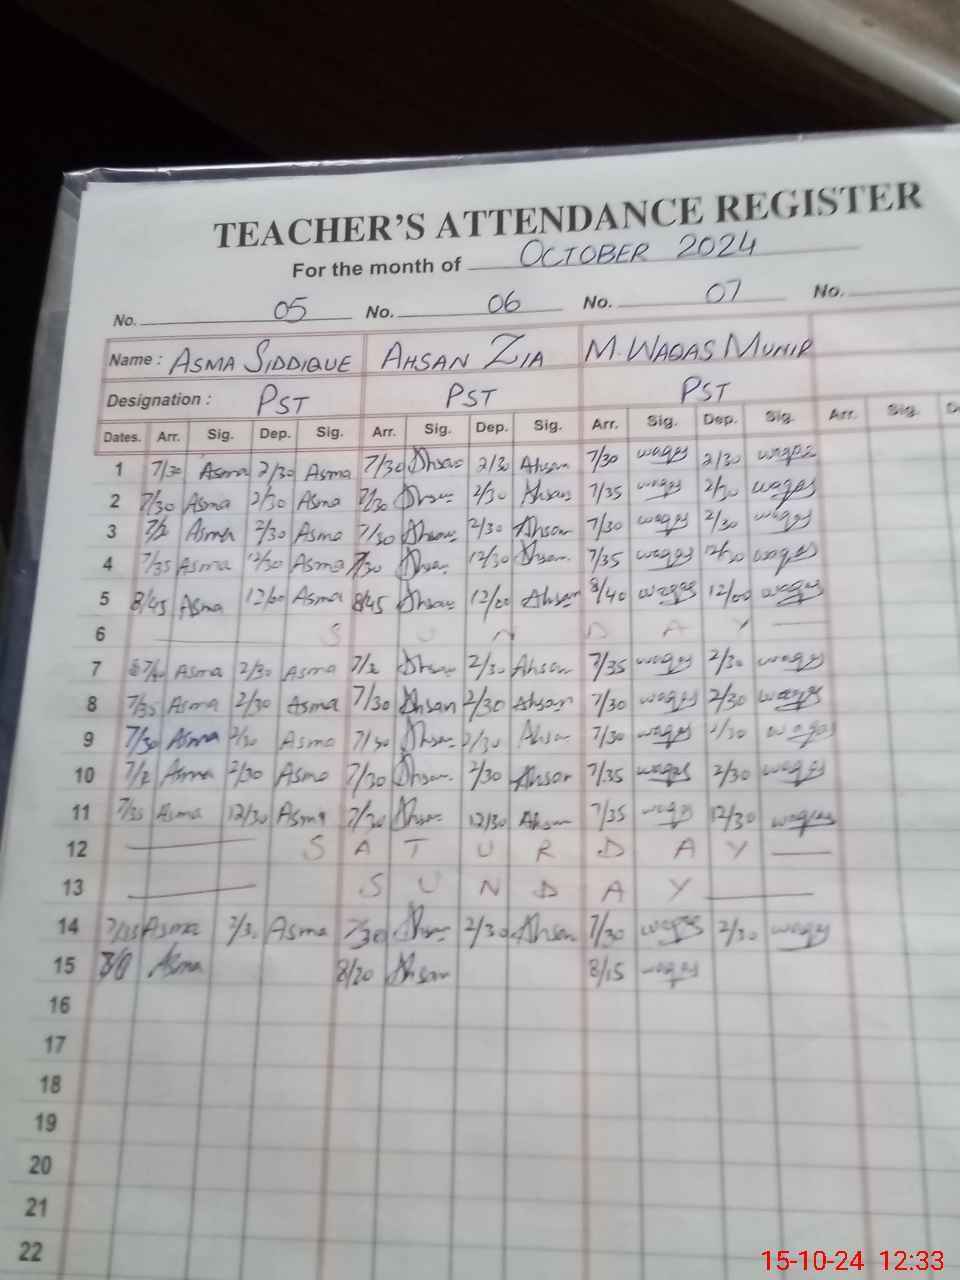 TEACHER'S ATTENDANCE REGISTER
For the month of OCTOBER 2024
No. 05 No. 06 No. 07 No.
Name : ASMA SIDDIQUE AHSAN ZIA M. WAQAS MUNIR
Designation : PST PST PST
Dates. Arr. Sig. Dep. Sig. Arr. Sig. Dep. Sig. Arr. Sig. Dep. Sig. Arr. Sig.
1 7/30 Asma 2/30 Asma 7/30 Ahsan 2/30 Ahsan 7/30 waqas 2/30 waqas
2 7/30 Asma 2/30 Asma 7/30 Ahsan 2/30 Ahsan 7/35 waqas 2/30 waqas
3 Asma 2/30 Asma 7/30 Ahsan 2/30 Ahsan 7/30 waqas 2/30 waqas
4 7/35 Asma 12/30 Asma 7/30 Ahsan 12/30 Ahsan 7/35 waqas 12/30 waqas
5 8/45 Asma 12/00 Asma 8/45 Ahsan 12/00 Ahsan 8/40 waqas 12/00 waqas
6 S U N D A Y
7 Asma 2/30 Asma Ahsan 2/30 Ahsan 7/35 waqas 2/30 waqas
8 7/35 Asma 2/30 Asma 7/30 Ahsan 2/30 Ahsan 7/30 waqas 2/30 waqas
9 7/30 Asma 2/30 Asma 7/30 Ahsan 2/30 Ahsan 7/30 waqas 2/30 waqas
10 Asma 2/30 Asma 7/30 Ahsan 2/30 Ahsan 7/35 waqas 2/30 waqas
11 7/35 Asma 12/30 Asma 7/30 Ahsan 12/30 Ahsan 7/35 waqas 12/30 waqas
12 S A T U R D A Y
13 S U N D A Y
14 Asma 2/30 Asma 7/30 Ahsan 2/30 Ahsan 7/30 waqas 2/30 waqas
15 Asma 8/20 Ahsan 8/15 waqas
16
17
18
19
20
21
22
15-10-24 12:33